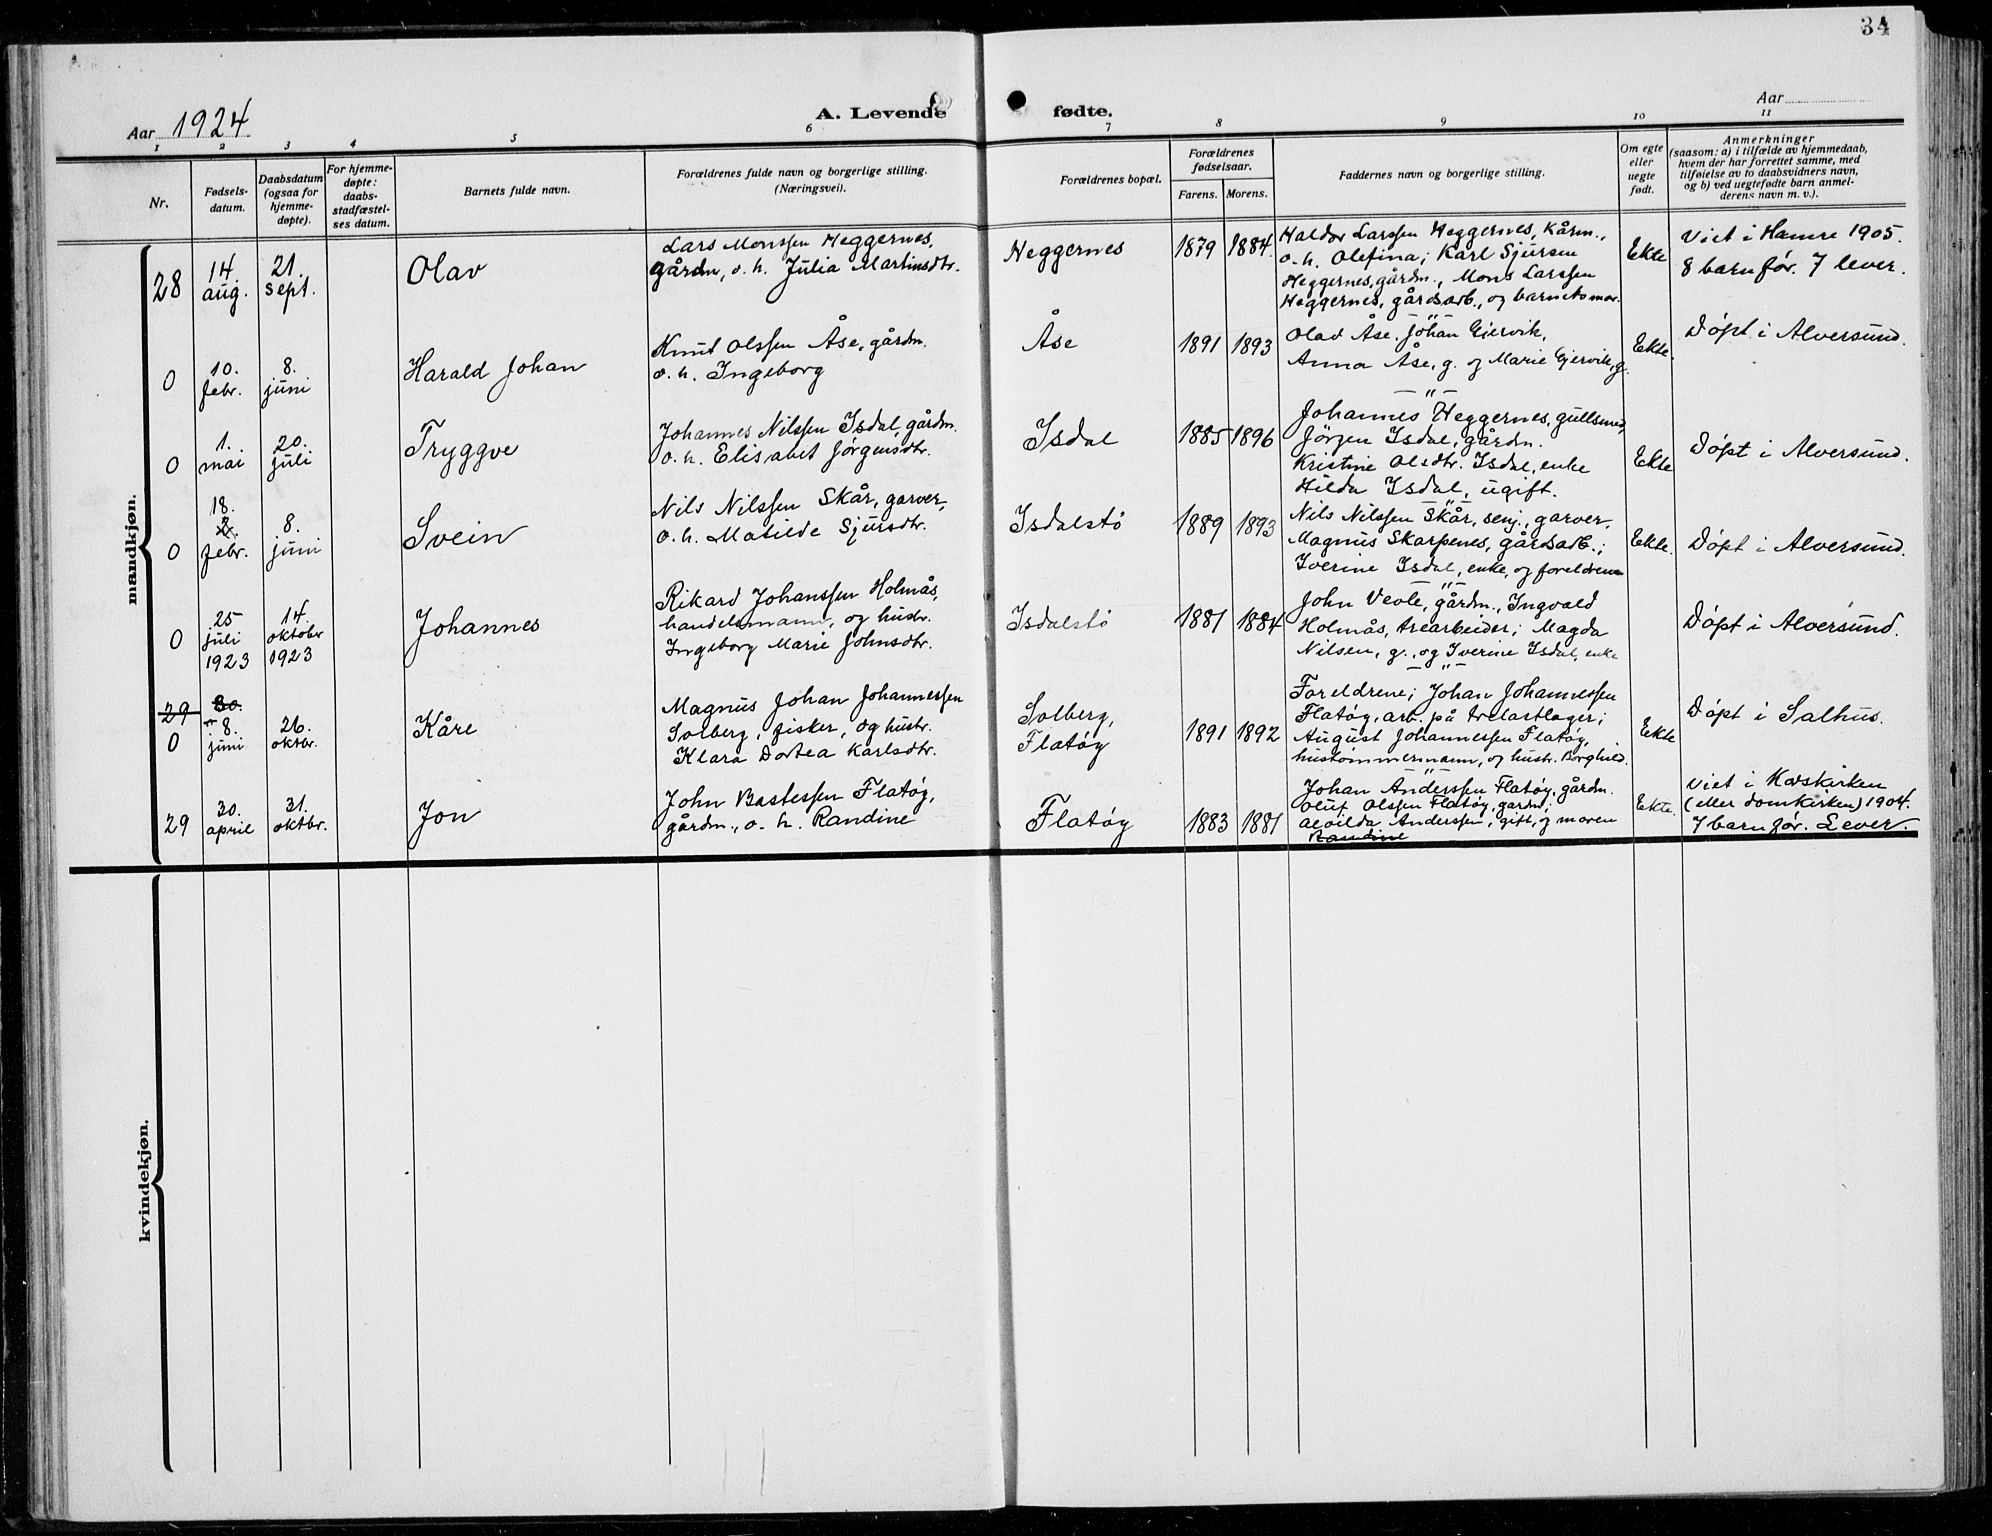 34
Aar 1924.
A. Levende fødte.
Aar
1 2 3 4 5 6 7 8 9 10 11
Nr.
Fødsels-
datum.
Daabsdatum
(ogsaa for
hjemme-
døpte).
For hjemme-
døpte:
daabs-
stadfæstel-
ses datum.
Barnets fulde navn.
Forældrenes fulde navn og borgerlige stilling.
(Næringsvei).
Forældrenes bopæl.
Forældrenes
fødselsaar.
Farens. Morens.
Faddernes navn og borgerlige stilling.
Om egte
eller
uegte
født.
Anmerkninger
(saasom: a) i tilfælde av hjemmedaab,
hvem der har forrettet samme, med
tilføielse av to daabsvidners navn,
og b) ved uegtefødte barn anmel-
derens navn m. v.).
mandkjøn.
28
14.
aug.
21.
sept.
Olav
Lars Monssen Heggernes,
gårdm, o. h. Julia Martinsdtr.
Heggernes
1879 1884.
Haldor Larssen Heggernes, kårm.,
o. h. Olefina; Karl Sjursen
Heggernes, gårdm., Mons Larssen
Heggernes, gårdsarb., og barnets mor.
Ekte
Viet i Hamre 1905.
8 barn før. 7 lever.
0
10.
febr.
8.
juni
Harald Johan
Knut Olssen Åse, gårdm.
o. h. Ingeborg
Åse
1891 1893
— " —
Olav Åse, Johan Gjervik,
Anna Åse, g. og Marie Gjervik, g.
Ekte.
Døpt i Alversund.
0
1.
mai
20.
juli
Tryggve
Johannes Nilssen Isdal, gårdm.
o. h. Elisabet Jørgensdtr.
Isdal
1885 1896
— " —
Johannes Heggernes, gullsmed,
Jörgen Isdal, gårdm.
Kristine Olsdtr. Isdal, enke
Hilda Isdal, ugift.
Ekte
Døpt i Alversund.
0
18.
2.
febr.
8.
juni
Svein
Nils Nilssen Skår, garver,
o. h. Matilde Sjursdtr.
Isdalstö
1889 1893
— " —
Nils Nilssen Skår, senj., garver,
Magnus Skarpenes, gårdsarb.;
Iverine Isdal, enke, og foreldrene
Ekte.
Døpt i Alversund.
0
25
juli
1923
14.
oktober
1923
Johannes
Rikard Johanssen Holmås,
handelsmann, og hustr.
Ingeborg Marie Johnsdtr.
Isdalstö
1881 1884
— " —
John Veole, gårdm., Ingvald
Holmås, trearbeider; Magda
Nilsen, g., og Iverine Isdal, enke
Døpt i Alversund.
29
0
30.
8.
juni
26.
oktbr.
Kåre
Magnus Johan Johannessen
Solberg, fisker, og hustr.
Klara Dortea Karlsdtr.
Solberg,
Flatøy
1891 1892
— " —
Foreldrene; Johan Johannessen
Flatøy, arb. på trelastlager;
August Johannessen Flatøy,
hustømmermann, og hustr. Borghild.
Ekte
Døpt i Salhus.
29
30.
april
31.
oktbr.
Jon
John Bastessen Flatøy,
gårdm., o. h. Randine
Flatøy
1883 1881
— " —
Johan Anderssen Flatøy, gårdm.
Oluf Olssen Flatøy, gårdm;
Alvilda Anderssen, gift, og moren
Randine
Ekte.
Viet i Korskirken
(eller domkirken) 1904.
7 barn før. Lever.
kvindekjøn.